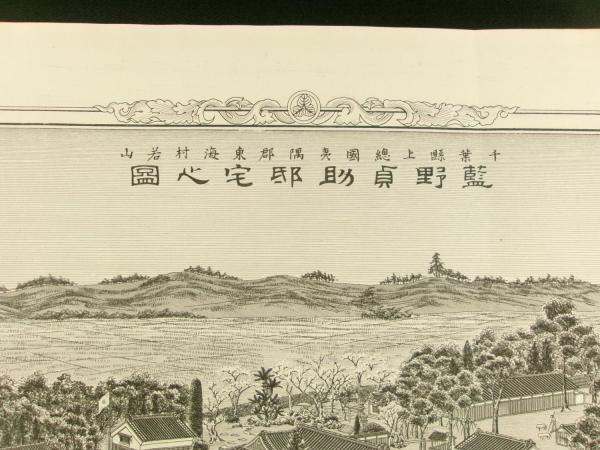 千葉縣上總國夷隅郡東海村若山
藍野貞助邸宅之圖